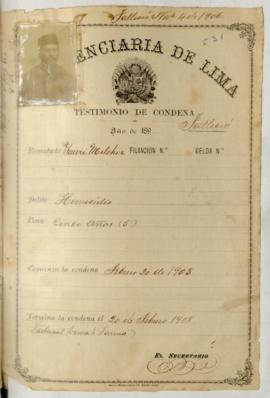 Falleció Nov 4 de 1906
531
PENITENCIARIA DE LIMA
TESTIMONIO DE CONDENA
Año de 189
Falleció
Rematado Yauri Melchor FILIACION N.° CELDA N.°
Delito Homicidio
Pena Cinco Años (5)
Comienza la condena Febrero 20 de 1903
Termina la condena el 20 de Febrero 1908
EL SECRETARIO